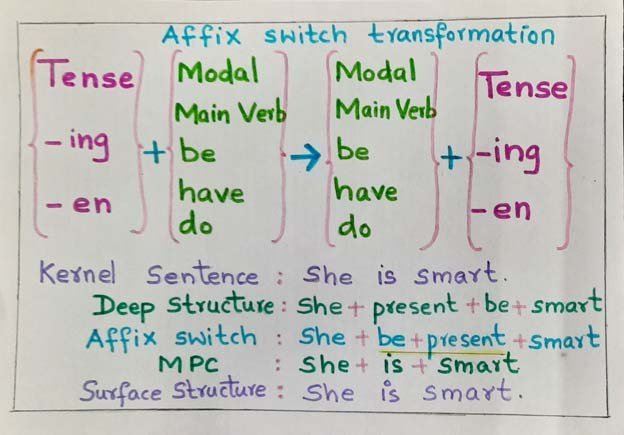 Affix switch transformation
Tense Modal Modal Tense
Main Verb Main Verb
-ing + be → be + -ing
-en have have -en
do do
Kernel Sentence : She is smart.
Deep Structure : She + present + be + smart
Affix switch : She + be + present + smart
MPC : She + is + smart
Surface Structure : She is smart.